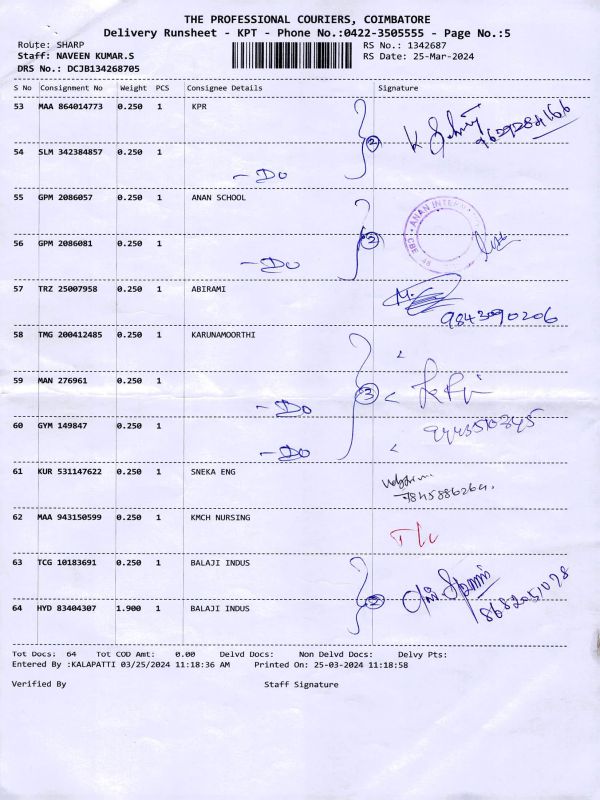 THE PROFESSIONAL COURIERS, COIMBATORE
Delivery Runsheet - KPT - Phone No.:0422-3505555 - Page No.:5
Route: SHARP RS No.: 1342687
Staff: NAVEEN KUMAR.S RS Date: 25-Mar-2024
DRS No.: DCJB134268705
S No Consignment No Weight PCS Consignee Details Signature
53 MAA 864014773 0.250 1 KPR
54 SLM 342384857 0.250 1
2
- Do
55 GPM 2086057 0.250 1 ANAN SCHOOL
ANAN INTER
CBE 48
56 GPM 2086081 0.250 1
2
- Do
57 TRZ 25007958 0.250 1 ABIRAMI
9843090206
58 TMG 200412485 0.250 1 KARUNAMOORTHI
59 MAN 276961 0.250 1
3
- Do
60 GYM 149847 0.250 1
9443510345
- Do
61 KUR 531147622 0.250 1 SNEKA ENG
7845886264.
62 MAA 943150599 0.250 1 KMCH NURSING
63 TCG 10183691 0.250 1 BALAJI INDUS
64 HYD 83404307 1.900 1 BALAJI INDUS
2
8682051078
Tot Docs: 64 Tot COD Amt: 0.00 Delvd Docs: Non Delvd Docs: Delvy Pts:
Entered By :KALAPATTI 03/25/2024 11:18:36 AM Printed On: 25-03-2024 11:18:58
Verified By Staff Signature